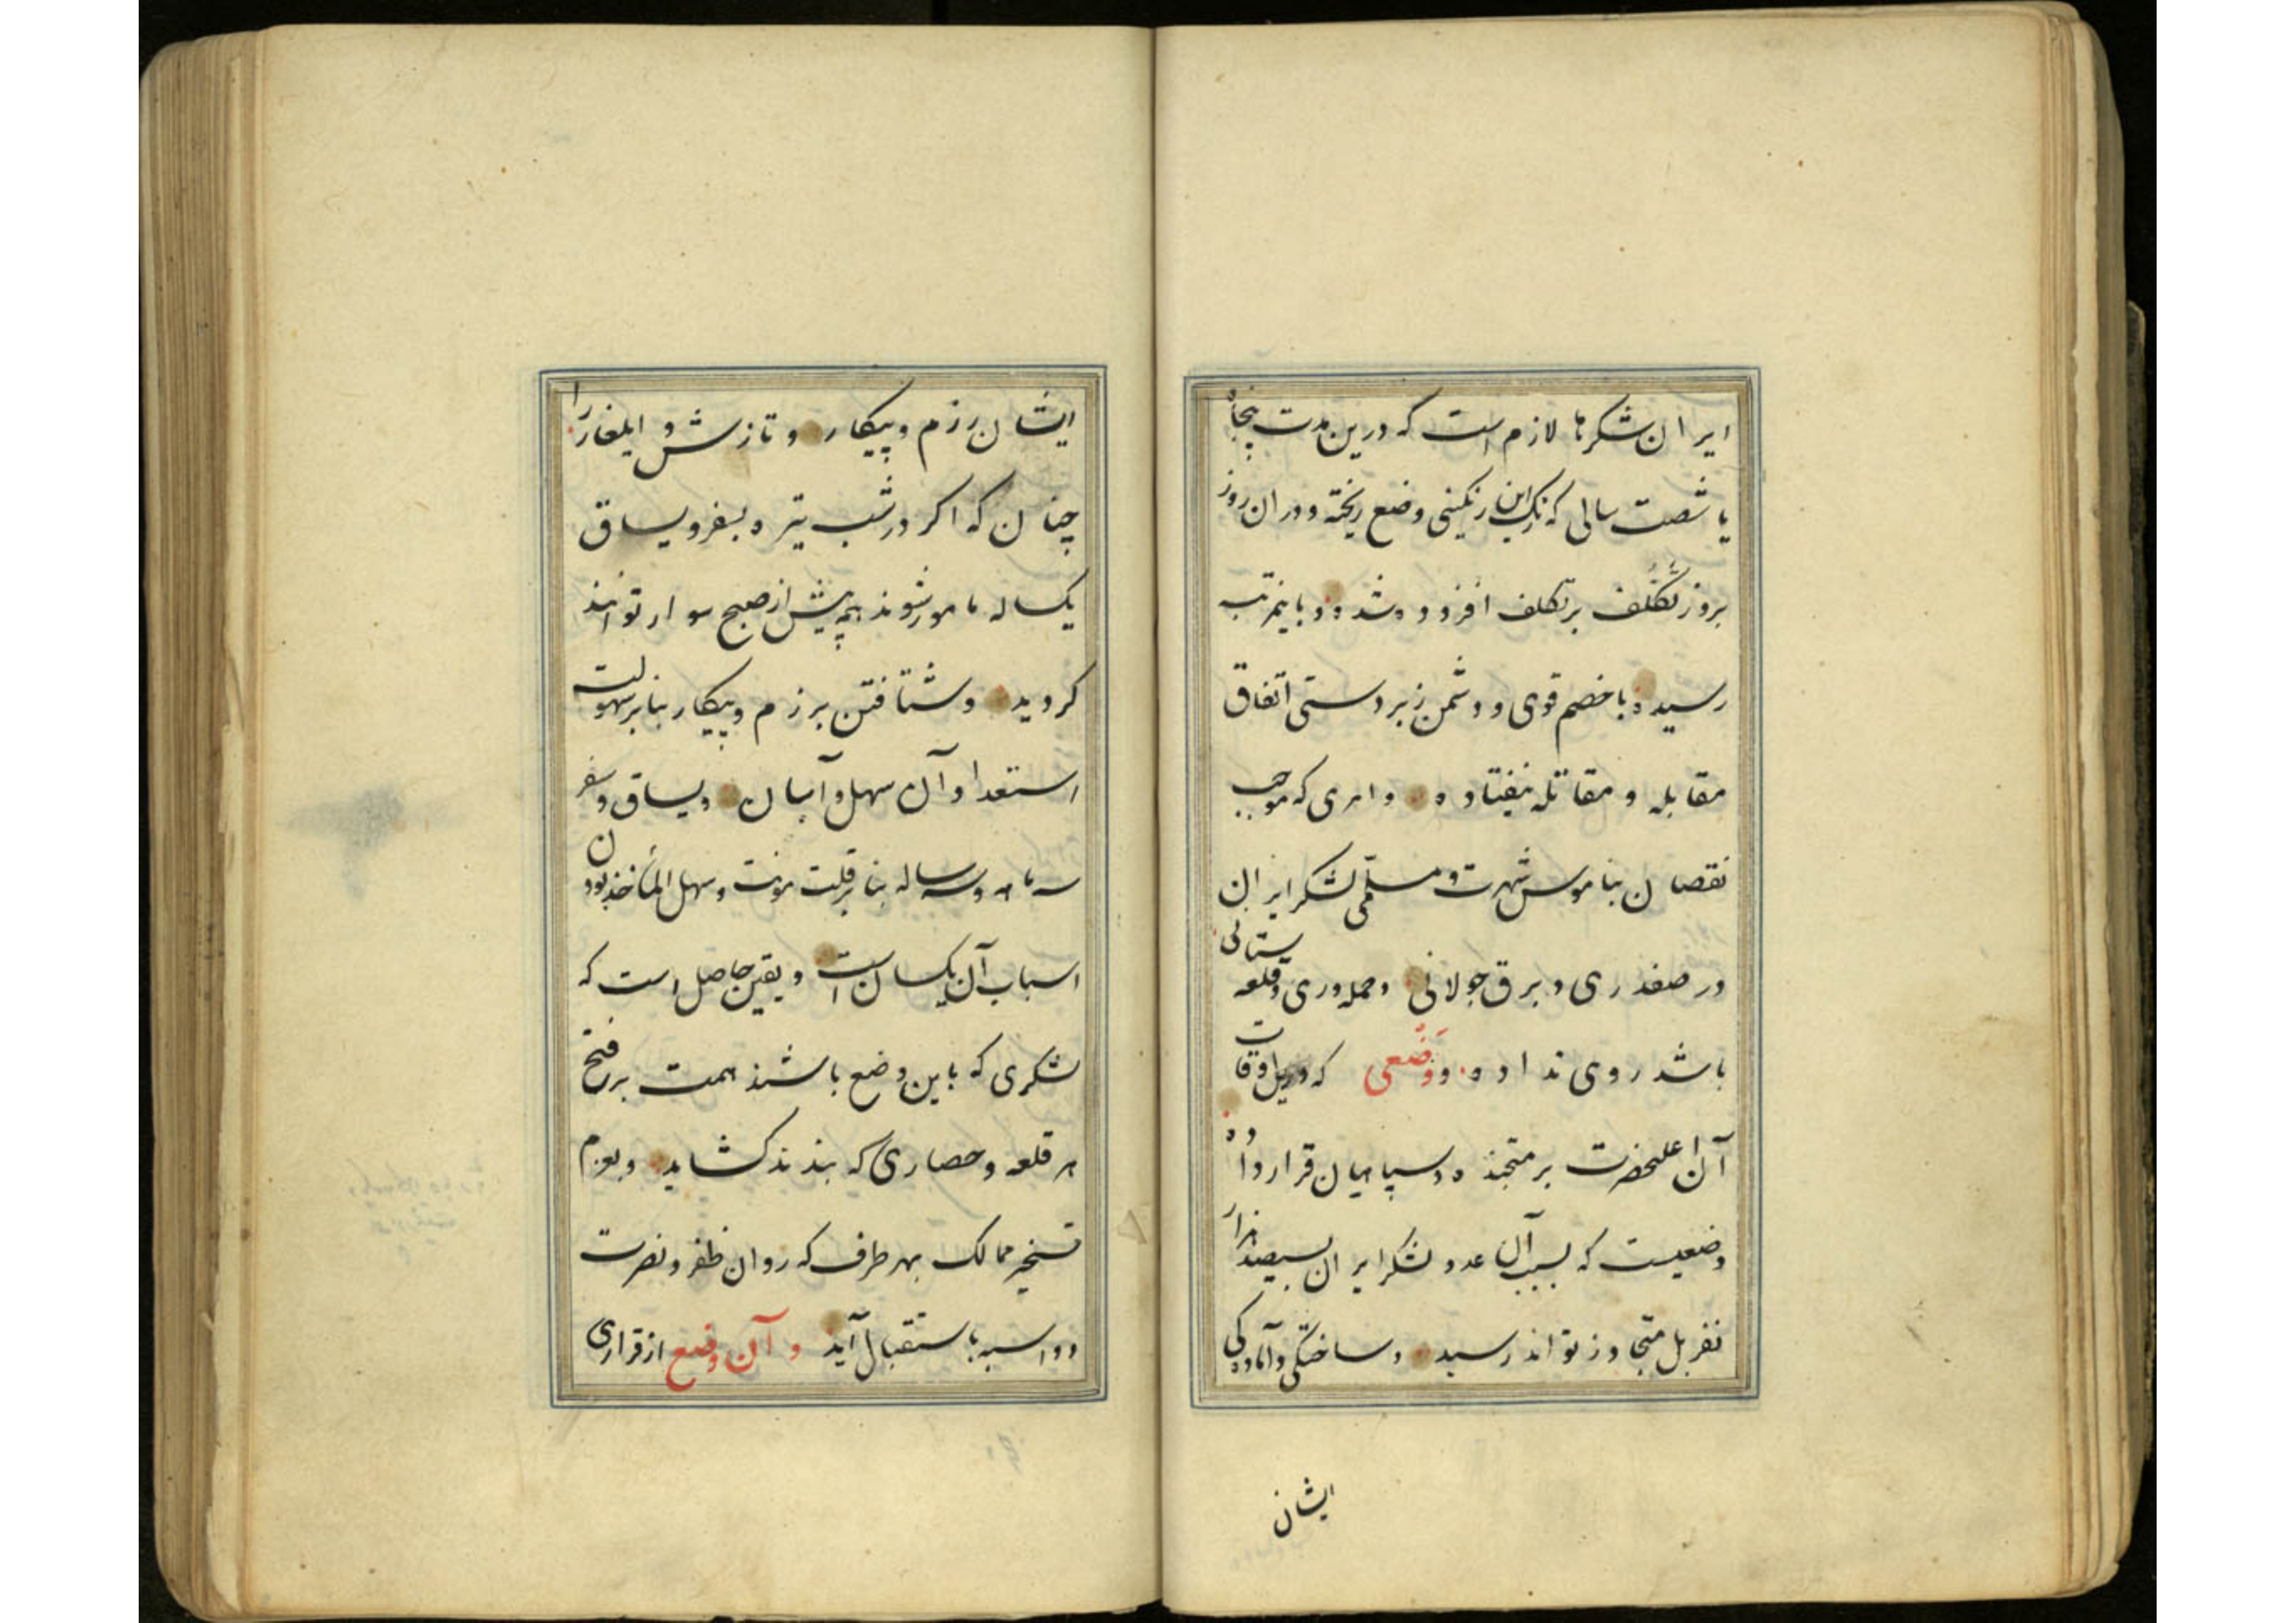 ایران شکرها لازم است که درین مدت پنجاه
یا شصت سالی که رنگ این رنگینی وضع ریخته و دران روز
بروز تکلف بر تکلف افزوده شده و باینمرتبه
رسیده با خصم قوی و دشمن زبردستی اتفاق
مقابله و مقاتله نیفتاده و امری که موجب
نقصان بناموس شهرت و مسلمی لشکر ایران
در صفدری و برق جولانی و حمله‌وری و قلعه ستانی
باشد روی نداده و وضعی که اوقات
آن اعلیحضرت بر متجنده و سپاهیان قرار داده
وضعیست که بسبب آن عدد لشکر ایران بسیصد هزار
نفر بل متجاوز تواند رسید و ساختگی و آمادگی
ایشان
ایشان رزم و پیکار و تازش و ایلغار را
چنان که اکر در شب تیره بسفر و یساق
یکساله مامور شوند همه پیش از صبح سوار توانند
کردید و شتافتن برزم و پیکار بنابر سهولت
استعداد آن سهل و آسان و یساق و سفر
سه ماهه و سه ساله بنابر قلت مونت و سهل المأخذ بودن
اسباب آن یکسان است و یقین حاصل است که
لشکری که باین وضع باشند همت بر فتح
هر قلعه و حصاری که بندند کشاید و بعزم
تسخیر ممالک بهر طرف که روان ظفر و نصرت
دواسبه باستقبال آید و آن وضع از قراری